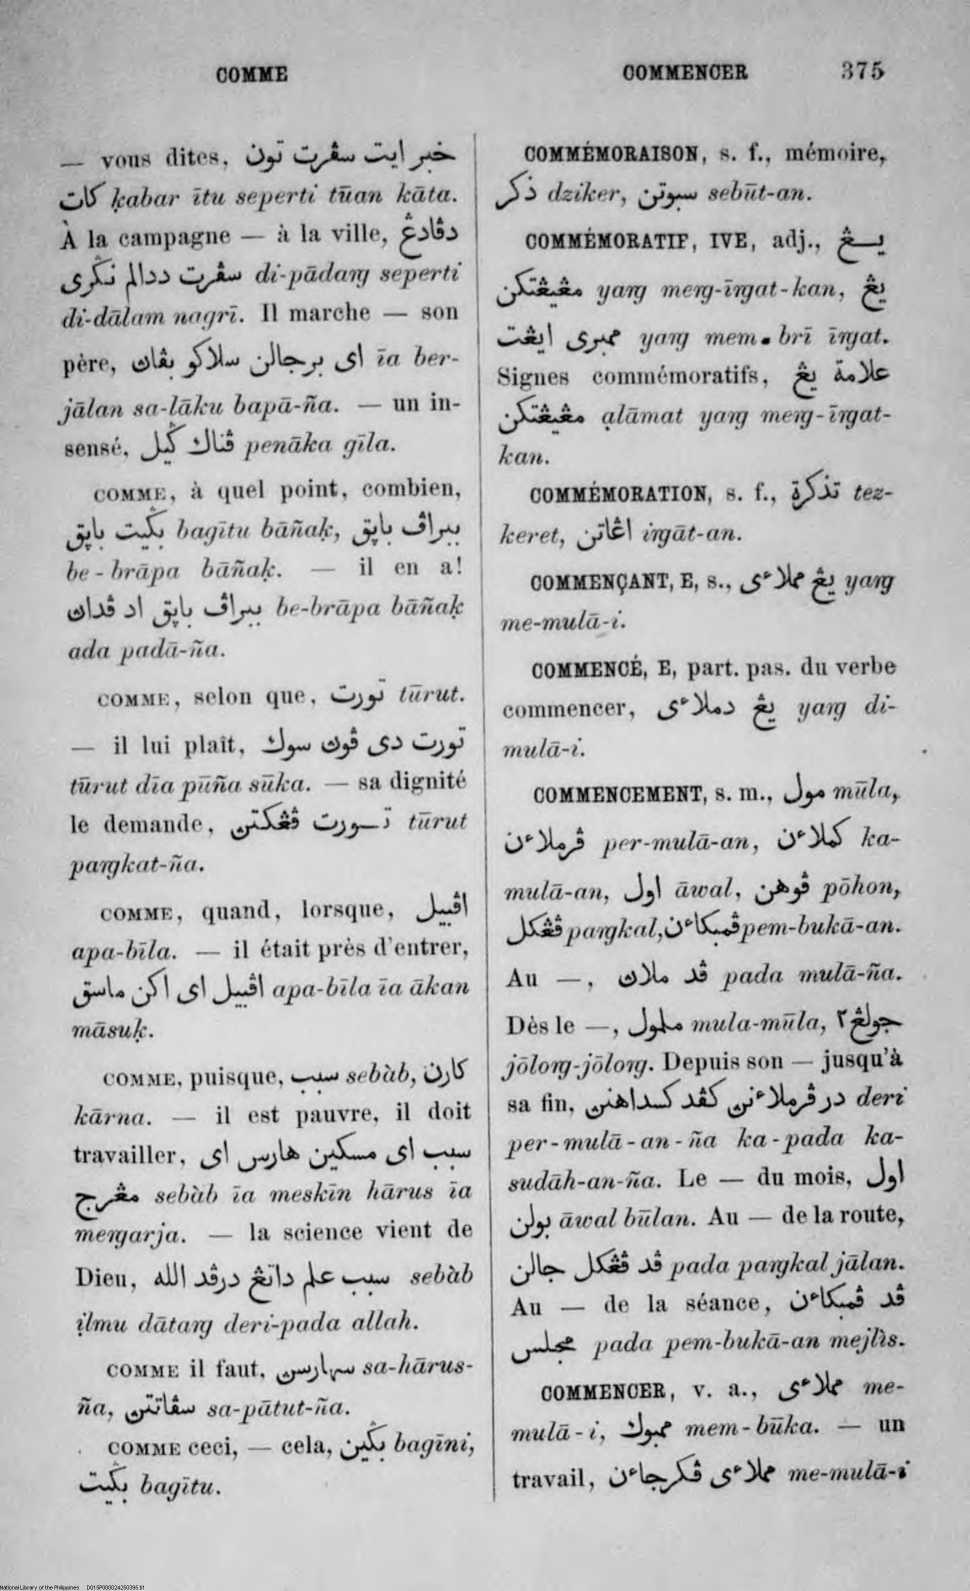 COMME
COMMENCER 375
— vous dites, خبر ايت سڤرت تون
كات ḳabar ītu seperti tūan kāta.
À la campagne — à la ville, دڤادڠ
سڤرت ددالم نݢري di-pādaŋ seperti
di-dālam nagrī. Il marche — son
père, اي برجالن سلاكو بڤاڽ īa ber-
jālan sa-lāku bapā-ña. — un in-
sensé, ڤناك ݢيل penāka gīla.
COMME, à quel point, combien,
بݢيت باڽق bagītu bāñaḳ, ببراڤ باڽق
be-brāpa bāñaḳ. — il en a!
ببراڤ باڽق اد ڤداڽ be-brāpa bāñaḳ
ada padā-ña.
COMME, selon que, تورت tūrut.
— il lui plaît, تورت دي ڤوڽ سوك
tūrut dīa pūña sūka. — sa dignité
le demande, تورت ڤڠكتن tūrut
paŋkat-ña.
COMME, quand, lorsque, اڤبيل
apa-bīla. — il était près d'entrer,
اڤبيل اي اكن ماسق apa-bīla īa ākan
māsuḳ.
COMME, puisque, سبب sebàb, كارن
kārna. — il est pauvre, il doit
travailler, سبب اي مسكين هارس اي
مڠرج sebàb īa meskīn hārus īa
meŋarja. — la science vient de
Dieu, سبب علم داتڠ درڤد الله sebàb
ịlmu dātaŋ deri-pada allah.
COMME il faut, سهارسن sa-hārus-
ña, سڤاتتن sa-pātut-ña.
COMME ceci, — cela, بݢين bagīni,
بݢيت bagītu.
COMMÉMORAISON, s. f., mémoire,
ذكر dziker, سبوتن sebūt-an.
COMMÉMORATIF, IVE, adj., يڠ
مڠيڠتكن yaŋ meŋ-īŋat-kan, يڠ
ممبري ايڠت yaŋ mem-brī īŋat.
Signes commémoratifs, علامة يڠ
مڠيڠتكن ạlāmat yaŋ meŋ-īŋat-
kan.
COMMÉMORATION, s. f., تذكرة tez-
keret, اڠاتن iŋāt-an.
COMMENÇANT, E, s., يڠ مملاءي yaŋ
me-mulā-i.
COMMENCÉ, E, part. pas. du verbe
commencer, يڠ دملاءي yaŋ di-
mulā-i.
COMMENCEMENT, s. m., مول mūla,
ڤرملاءن per-mulā-an, كملاءن ka-
mulā-an, اول āwal, ڤوهن pōhon,
ڤڠكل paŋkal, ڤمبكاءن pem-bukā-an.
Au —, ڤد ملاڽ pada mulā-ña.
Dès le —, ملمول mula-mūla, جولڠ٢
jōloŋ-jōloŋ. Depuis son — jusqu'à
sa fin, در ڤرملاءنڽ كڤد كسداهنن deri
per-mulā-an-ña ka-pada ka-
sudāh-an-ña. Le — du mois, اول
بولن āwal būlan. Au — de la route,
ڤد ڤڠكل جالن pada paŋkal jālan.
Au — de la séance, ڤد ڤمبكاءن
مجلس pada pem-bukā-an mejlìs.
COMMENCER, v. a., مملاءي me-
mulā-i, ممبوك mem-būka. — un
travail, مملاءي ڤكرجاءن me-mulā-i
National Library of the Philippines